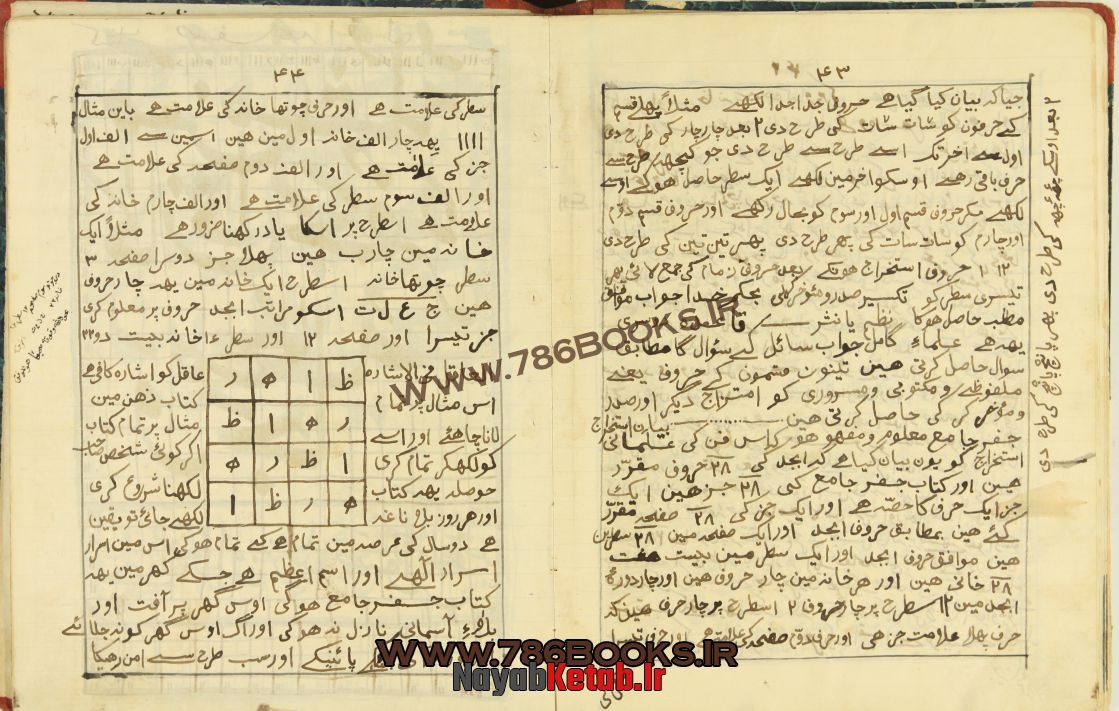 ۴۳
جیاکہ بیان کیا گیا ہے حروف جدا جدا لکھے مثلاً پہلے قسم
کے حرفون کو سات سات کی طرح دی ۲ بعد چار چار کی طرح دی
اول سے اخر تک اسے طرح سے طرح دی جو کچھ طرح سے
حرف باقی رہے اوسکو اخر مین لکھے ایک سطر حاصل ہوگی اوسے
لکھے مکر حروف قسم اول اور سوم کو بحال رکھے اور حروف قسم دوم
اور چارم کو سات سات کی پھر طرح دی پھر تین تین کی طرح دی
۱۲ حروف استخراج ہونگے بعد حروف زمام کی جمع لائی پھر
تیسری سطر کو تکسیر صدر و مؤخر کری بحکم خدا جواب موافق
مطلب حاصل ہوگا نظم یا نثر سے قاعدہ دوسری
یہ ہے علماء کامل جواب سائل کے سؤال کا مطابق
سوال حاصل کرتی ہین تینون قسمون کے حروف یعنے
ملفوظی و مکتوبی و مسروری کو امتزاج دیکر اور صدر
و مؤخر کر کی حاصل کرتی ہین بیان استخراج
جفر جامع معلوم و مفہوم ہو کہ اس فن کی علمائی
استخراج کو یون بیان کیا ہے کہ ابجد کی ۲۸ حروف مقرر
ہین اور کتاب جفر جامع کی ۲۸ جز ہین ایک
جز ایک حرف کا حصہ ہے اور ایک جز کی ۲۸ صفحہ مقرر
کئے ہین بمطابق حروف ابجد اور ایک صفحہ مین ۲۸ سطرین
ہین موافق حروف ابجد اور ایک سطر مین بیست ہشت
۲۸ خانی ہین اور ہر خانہ مین چار حروف ہین اور چار دورہ
ابجد مین ۱۲ اسطرح پر چار حروف ۲ اسطرح پر چار حرف ہین کہ
حرف پہلا علامت جز ہی اور حرف دوم صفحہ کی علامت ہی اور حرف تیسرا
۴۴
سطر کی علامت ہے اور حرف چوتھا خانہ کی علامت ہے باین مثال
۱۱۱۱ یہہ چار الف خانہ اول مین ہین اسمین سے الف اول
جز کی علامت ہے اور الف دوم صفحہ کی علامت ہے
اور الف سوم سطر کی علامت ہے اور الف چارم خانہ کی
علامت ہے اسطرح پر اسکا یاد رکھنا ضرور ہے مثلاً ایک
خانہ مین چار ب ہین پہلا جز دوسرا صفحہ ۳
سطر چوتھا خانہ اسطرح ایک خانہ مین یہہ چار حروف
ہین ج ع ل ت اسکو مراتب ابجد حروف پر معلوم کری
جز تیسرا اور صفحہ ۱۲ اور سطر خانہ بیست دو ۲۲
الاشارہ عاقل کو اشارہ کافی ہے
اس مثال پر تمام کتاب ذہن مین
لانا چاہئے اور اسے مثال پر تمام کتاب
کو لکھکر تمام کری اگر کوئی شخص صاحب
حوصلہ یہہ کتاب لکھنا شروع کری
اور ہر روز بلا ناغہ لکھے جائی تو یقین
ظ ا ہ ر
ر ہ ا ظ
ا ظ ر ہ
ہ ر ظ ا
ہے دو سال کی عرصہ مین تمام ہے کے تمام ہوگی اس مین اسرار
اسرار الٰہے اور اسم اعظم ہے جسکے گھر مین یہہ
کتاب جفر جامع ہوگی اوس گھر پر آفت اور
بلاء آسمانی نازل نہ ہوگی اور آگ اوس گھر کو نہ جلائے
پائینگے اور سب طرح سے امن رہیگا
WWW.786BOOKS.IR
WWW.786BOOKS.IR
NayabKetab.ir